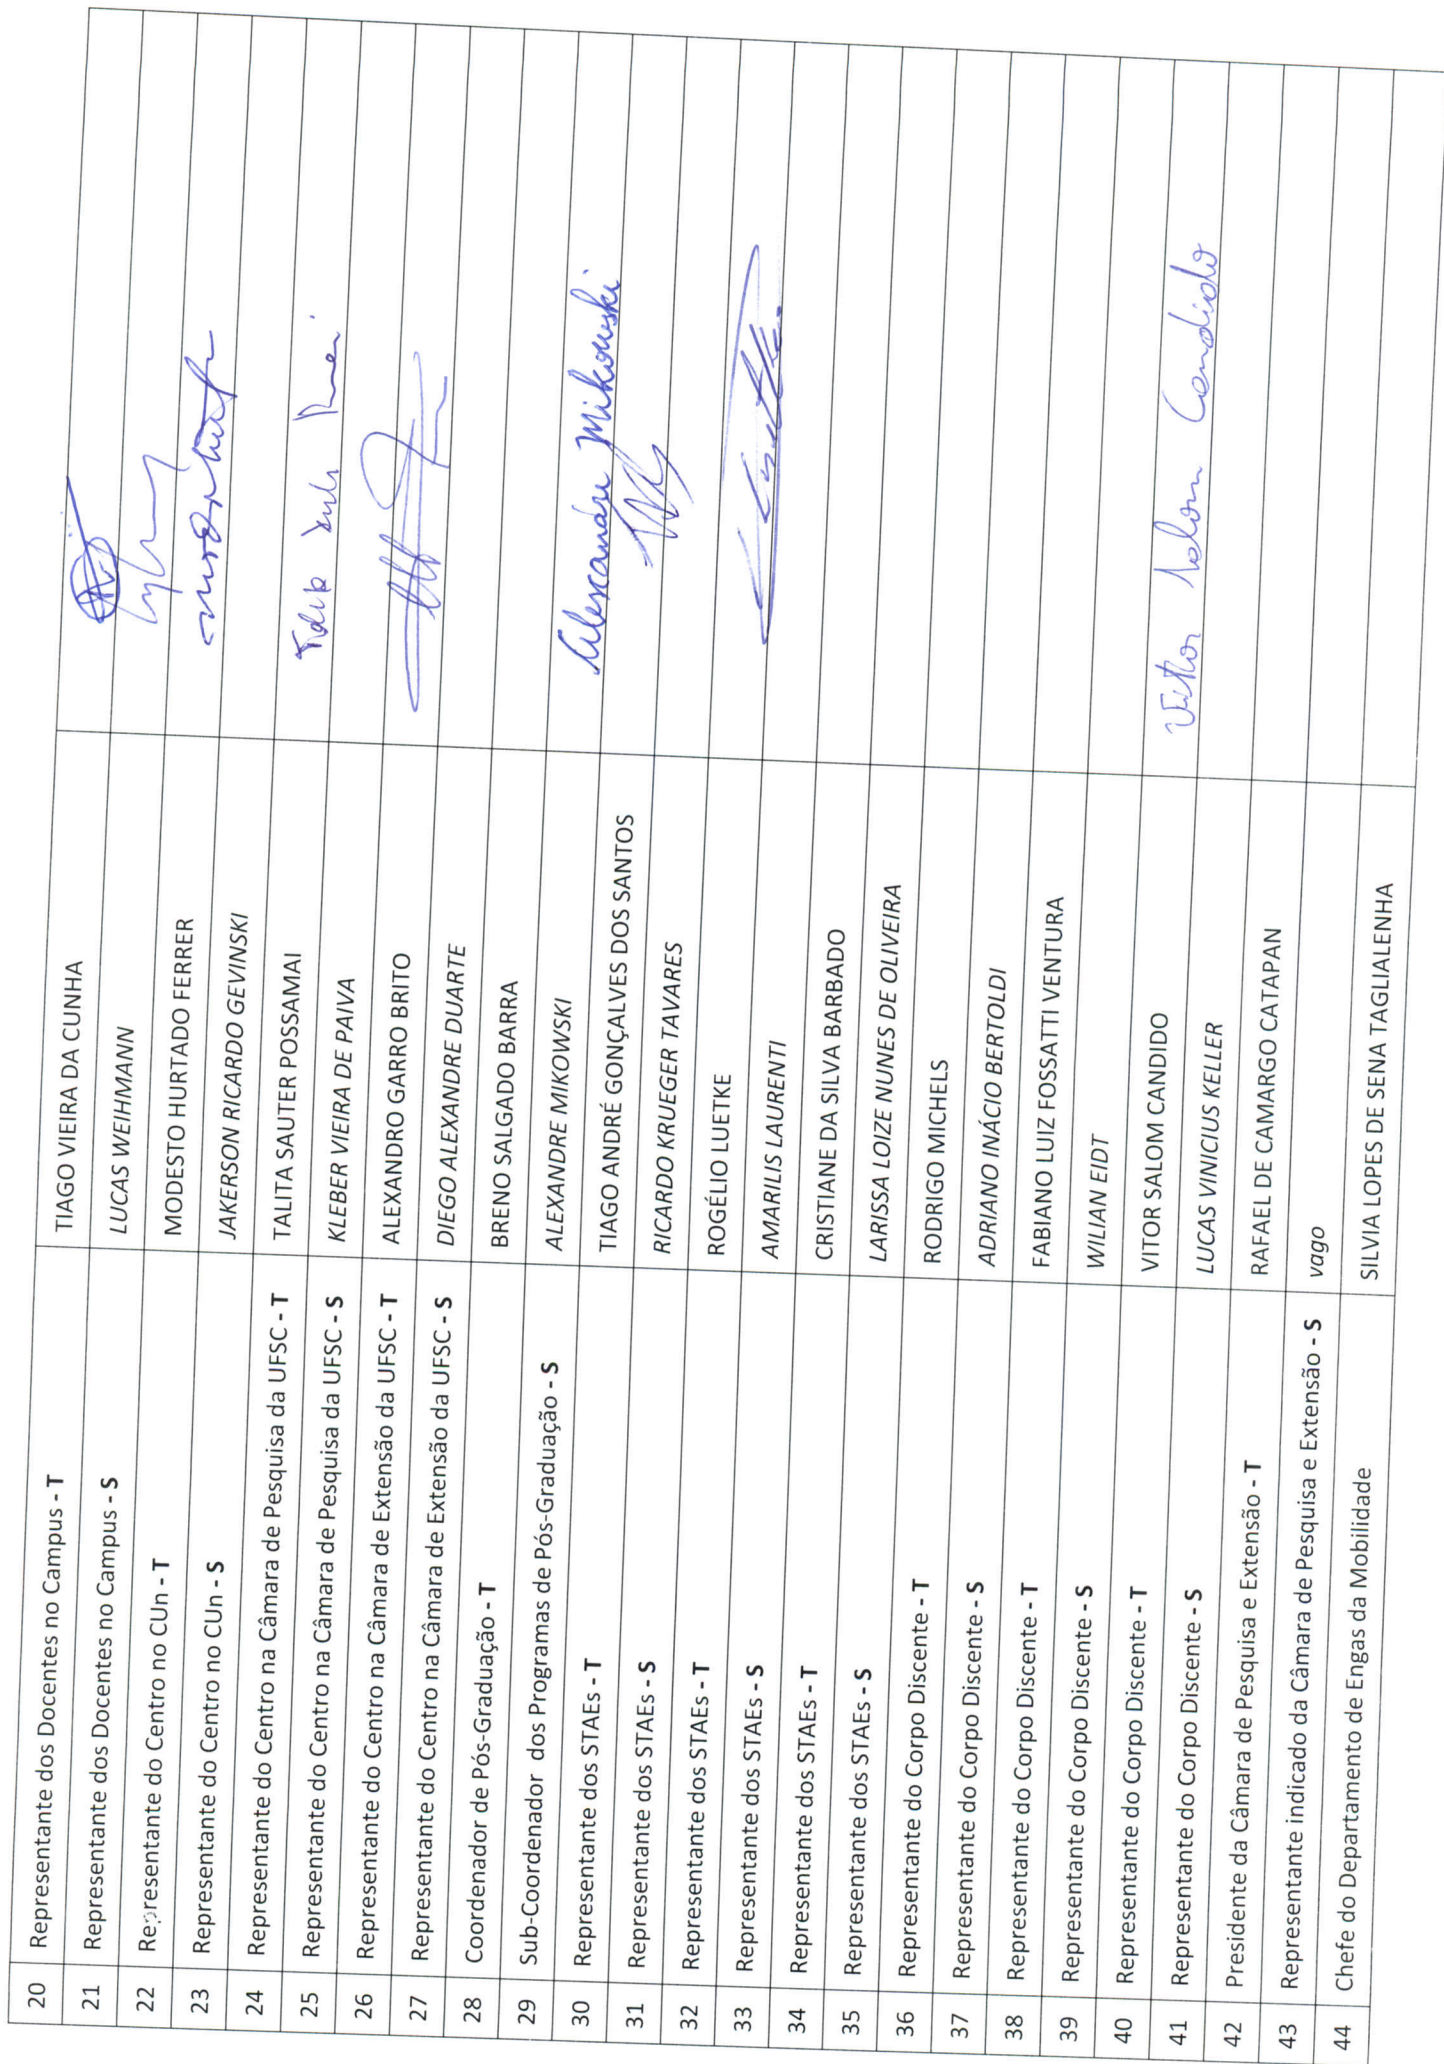 20 Representante dos Docentes no Campus - T TIAGO VIEIRA DA CUNHA
21 Representante dos Docentes no Campus - S LUCAS WEIHMANN
22 Representante do Centro no CUn - T MODESTO HURTADO FERRER
23 Representante do Centro no CUn - S JAKERSON RICARDO GEVINSKI
24 Representante do Centro na Câmara de Pesquisa da UFSC - T TALITA SAUTER POSSAMAI
25 Representante do Centro na Câmara de Pesquisa da UFSC - S KLEBER VIEIRA DE PAIVA
26 Representante do Centro na Câmara de Extensão da UFSC - T ALEXANDRO GARRO BRITO
27 Representante do Centro na Câmara de Extensão da UFSC - S DIEGO ALEXANDRE DUARTE
28 Coordenador de Pós-Graduação - T BRENO SALGADO BARRA
29 Sub-Coordenador dos Programas de Pós-Graduação - S ALEXANDRE MIKOWSKI Alexandre Mikowski
30 Representante dos STAEs - T TIAGO ANDRÉ GONÇALVES DOS SANTOS
31 Representante dos STAEs - S RICARDO KRUEGER TAVARES
32 Representante dos STAEs - T ROGÉLIO LUETKE
33 Representante dos STAEs - S AMARILIS LAURENTI
34 Representante dos STAEs - T CRISTIANE DA SILVA BARBADO
35 Representante dos STAEs - S LARISSA LOIZE NUNES DE OLIVEIRA
36 Representante do Corpo Discente - T RODRIGO MICHELS
37 Representante do Corpo Discente - S ADRIANO INÁCIO BERTOLDI
38 Representante do Corpo Discente - T FABIANO LUIZ FOSSATTI VENTURA
39 Representante do Corpo Discente - S WILIAN EIDT
40 Representante do Corpo Discente - T VITOR SALOM CANDIDO Vitor Salom Candido
41 Representante do Corpo Discente - S LUCAS VINICIUS KELLER
42 Presidente da Câmara de Pesquisa e Extensão - T RAFAEL DE CAMARGO CATAPAN
43 Representante indicado da Câmara de Pesquisa e Extensão - S vago
44 Chefe do Departamento de Engas da Mobilidade SILVIA LOPES DE SENA TAGLIALENHA